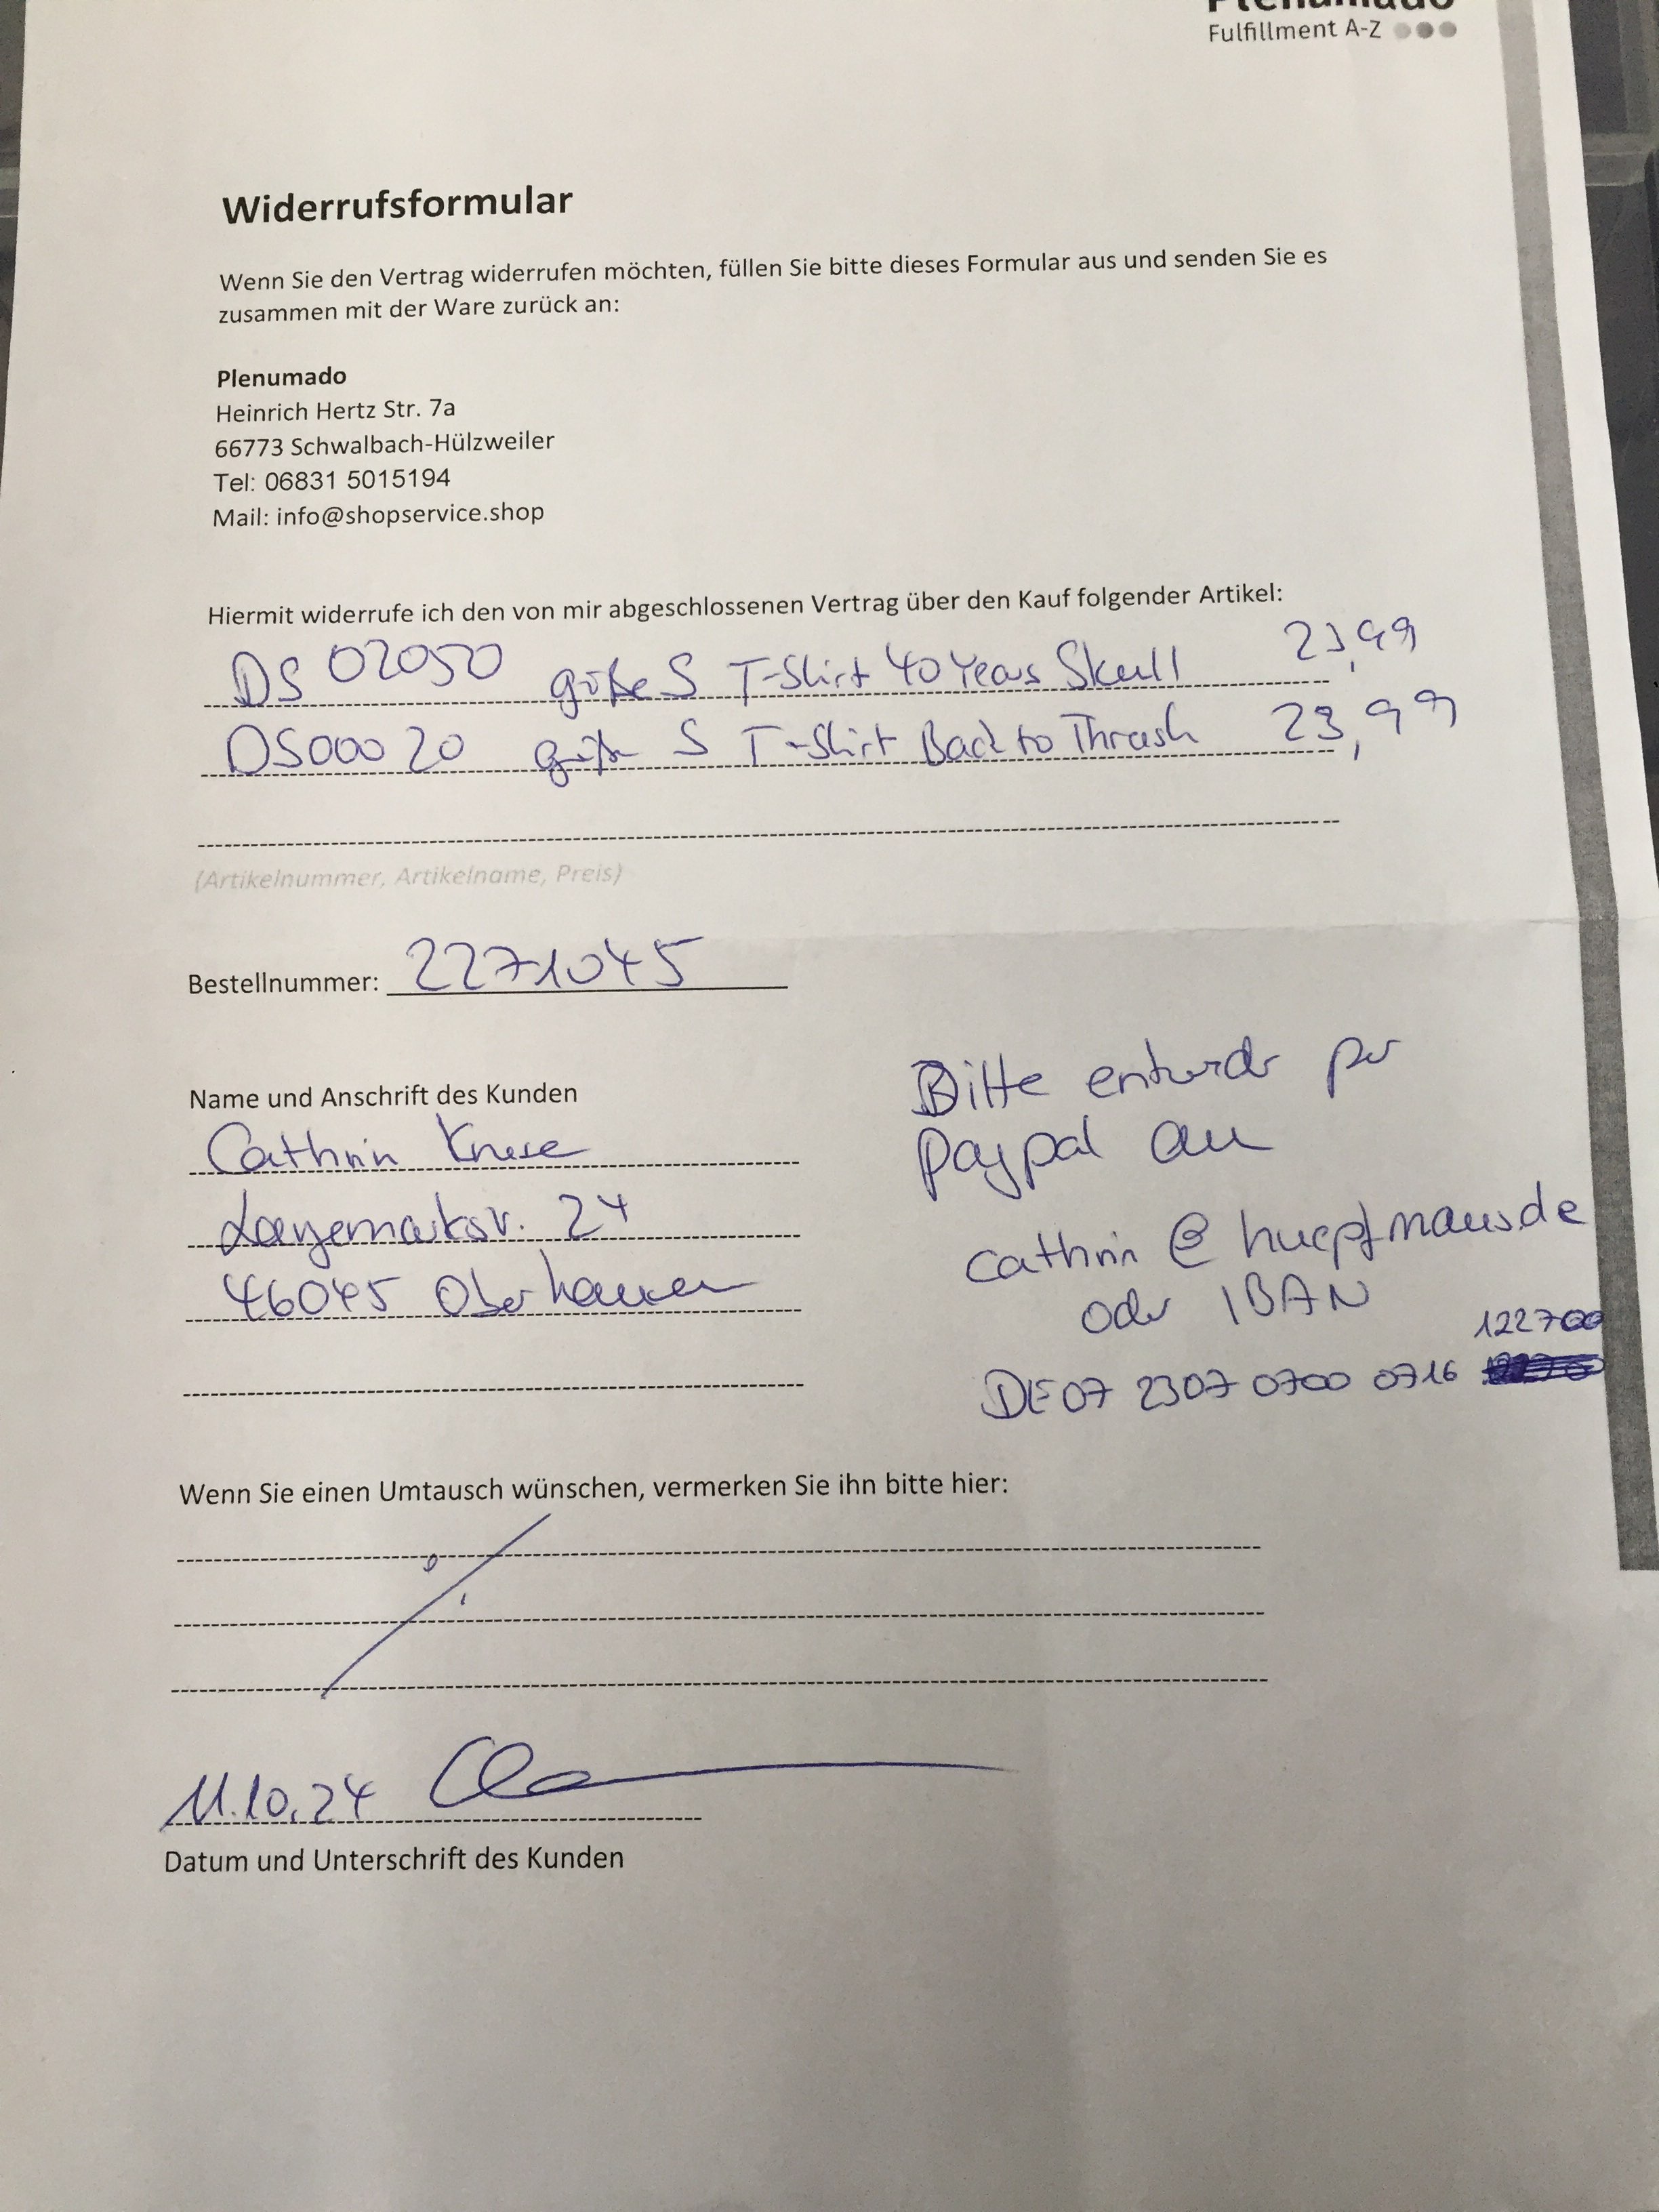 Plenumado
Fulfillment A-Z
Widerrufsformular
Wenn Sie den Vertrag widerrufen möchten, füllen Sie bitte dieses Formular aus und senden Sie es
zusammen mit der Ware zurück an:
Plenumado
Heinrich Hertz Str. 7a
66773 Schwalbach-Hülzweiler
Tel: 06831 5015194
Mail: info@shopservice.shop
Hiermit widerrufe ich den von mir abgeschlossenen Vertrag über den Kauf folgender Artikel:
DS 02050 größe S T-Shirt 40 Years Skull 23,99
DS00020 größe S T-Shirt Back to Thrash 23,99
(Artikelnummer, Artikelname, Preis)
Bestellnummer: 2271045
Name und Anschrift des Kunden
Cathrin
24
46045 Oberhausen
Bitte entweder per
Paypal an
cathrin@huepfmaus.de
oder IBAN
122700
DE07 2307 0700 0716
Wenn Sie einen Umtausch wünschen, vermerken Sie ihn bitte hier:
11.10.24
Datum und Unterschrift des Kunden